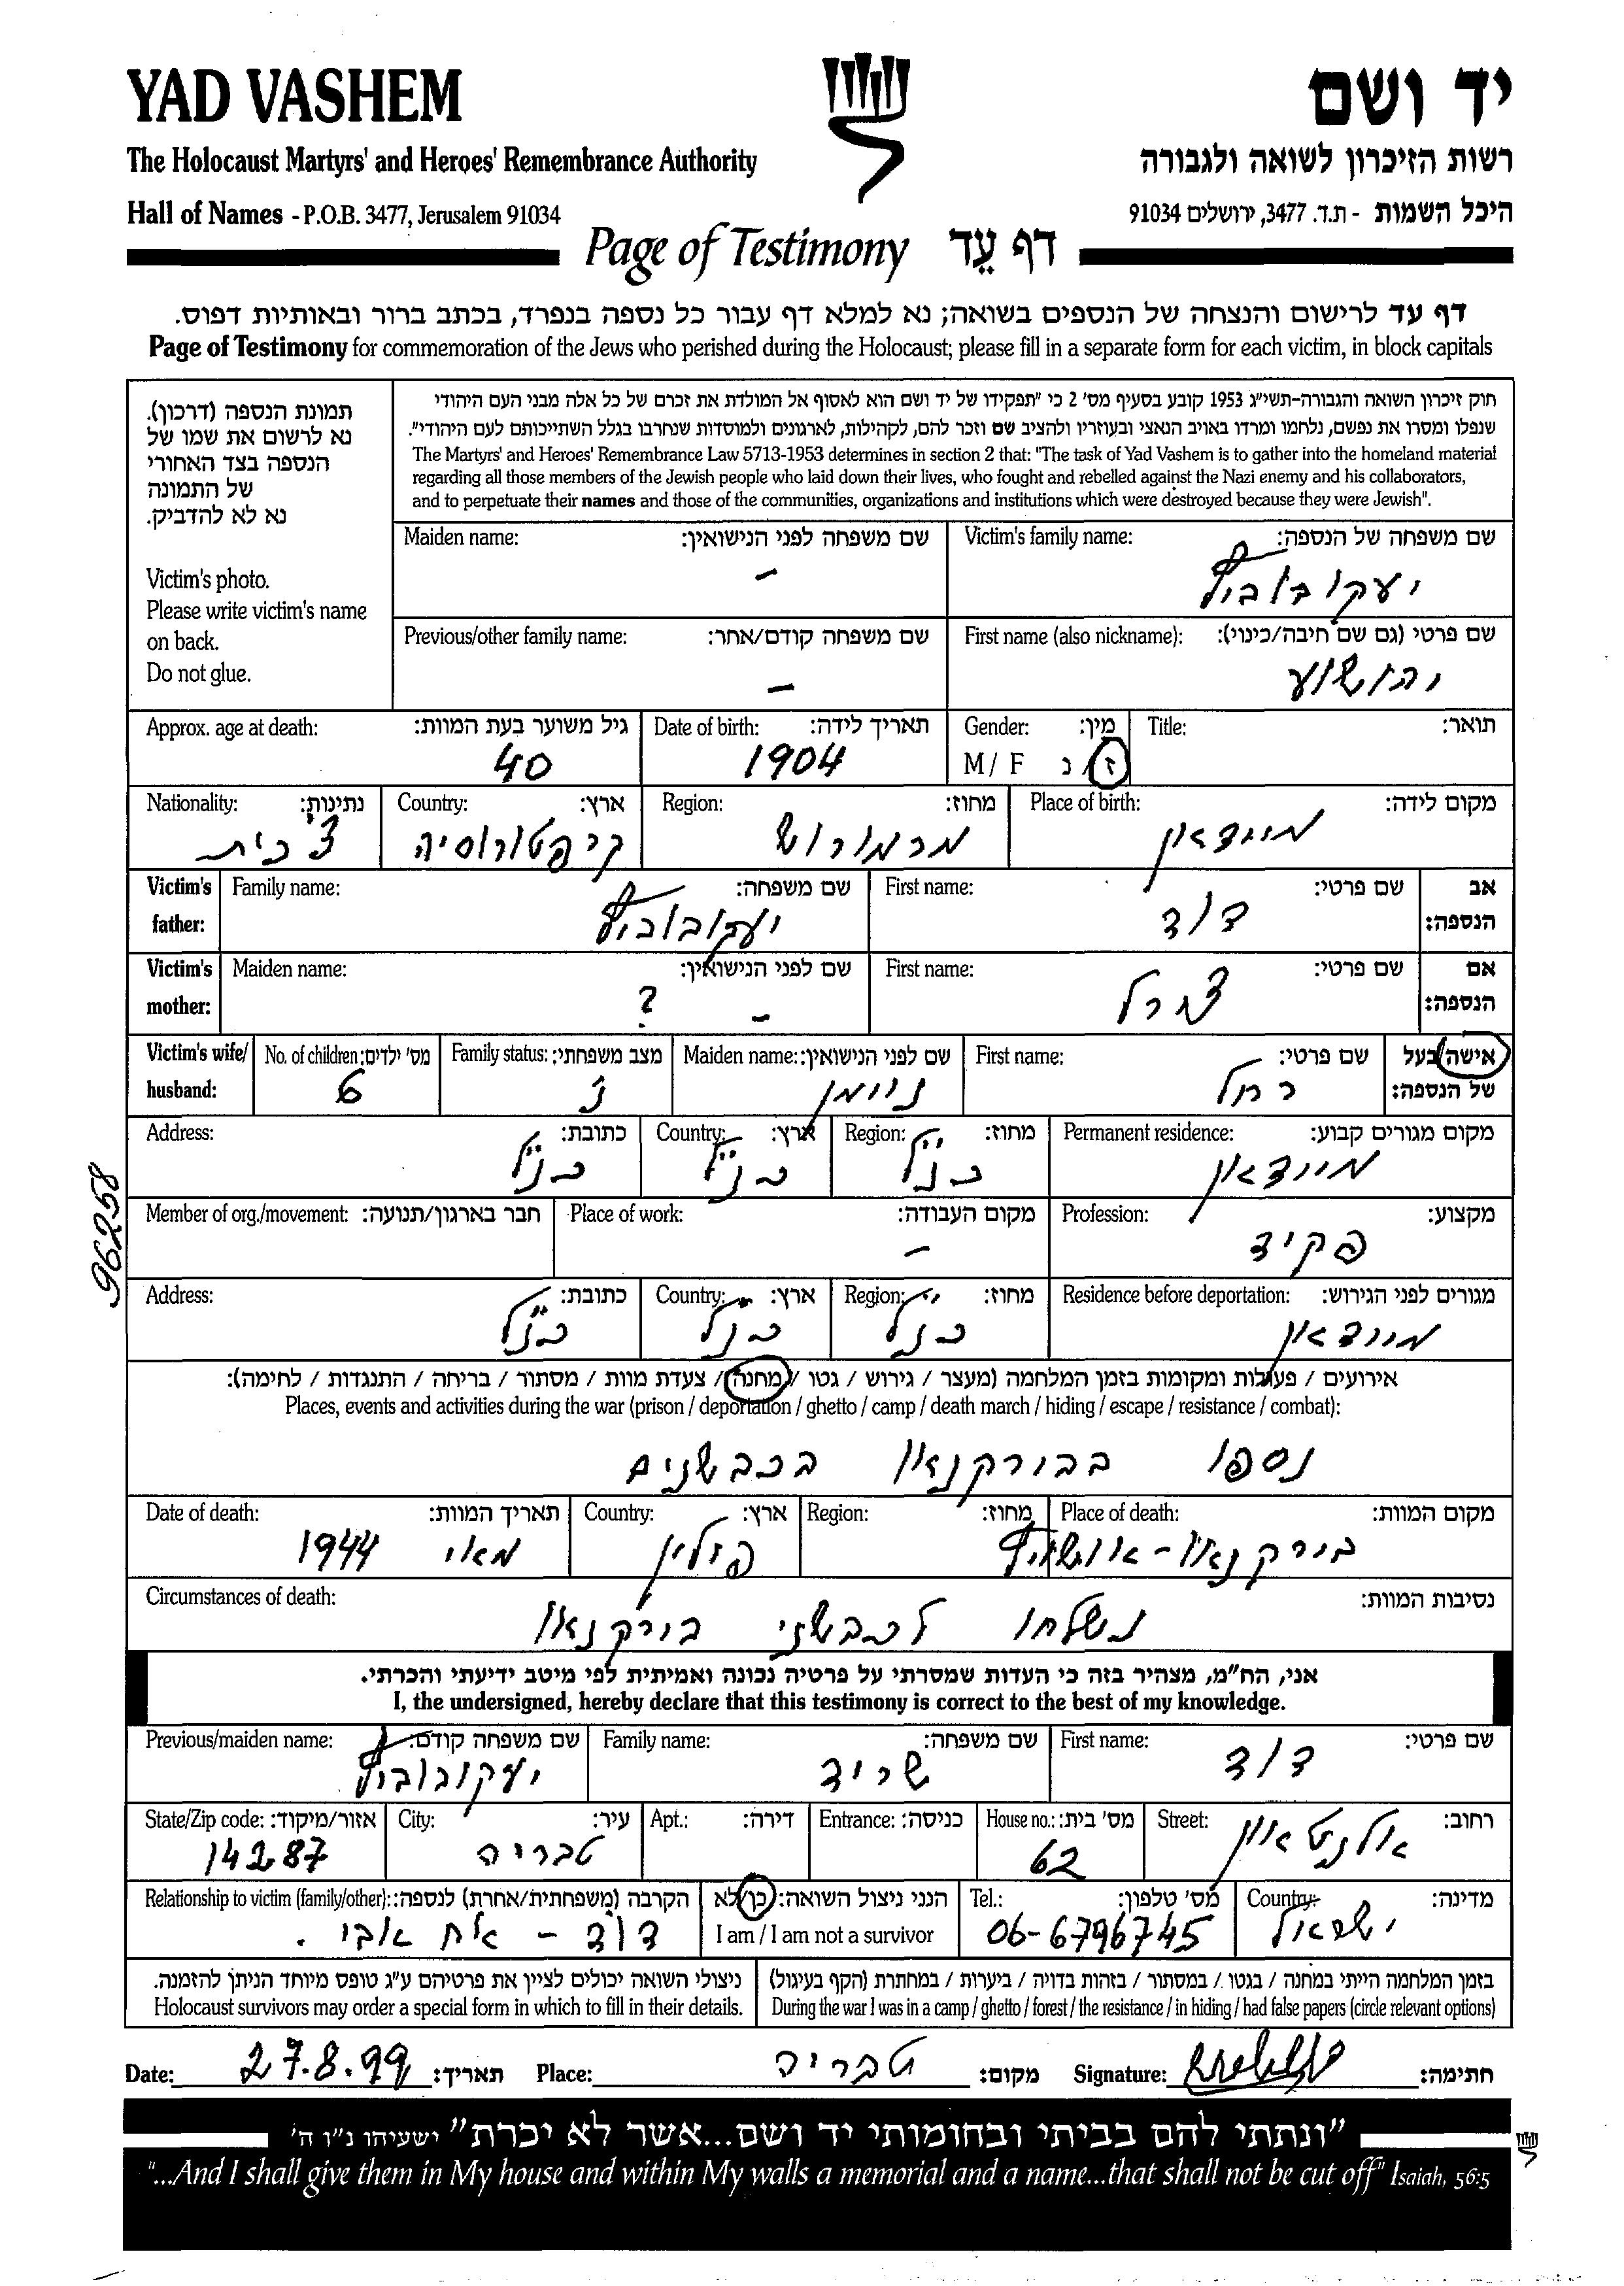 YAD VASHEM
יד ושם
The Holocaust Martyrs' and Heroes' Remembrance Authority
רשות הזיכרון לשואה ולגבורה
Hall of Names - P.O.B. 3477, Jerusalem 91034
היכל השמות - ת.ד. 3477, ירושלים 91034
Page of Testimony דף עֵד
דף עד לרישום והנצחה של הנספים בשואה; נא למלא דף עבור כל נספה בנפרד, בכתב ברור ובאותיות דפוס.
Page of Testimony for commemoration of the Jews who perished during the Holocaust; please fill in a separate form for each victim, in block capitals
תמונת הנספה (דרכון).
נא לרשום את שמו של
הנספה בצד האחורי
של התמונה
נא לא להדביק.
Victim's photo.
Please write victim's name
on back.
Do not glue.
חוק זיכרון השואה והגבורה-תשי"ג 1953 קובע בסעיף מס' 2 כי "תפקידו של יד ושם הוא לאסוף אל המולדת את זכרם של כל אלה מבני העם היהודי
שנפלו ומסרו את נפשם, נלחמו ומרדו באויב הנאצי ובעוזריו ולהציב שם וזכר להם, לקהילות, לארגונים ולמוסדות שנחרבו בגלל השתייכותם לעם היהודי".
The Martyrs' and Heroes' Remembrance Law 5713-1953 determines in section 2 that: "The task of Yad Vashem is to gather into the homeland material
regarding all those members of the Jewish people who laid down their lives, who fought and rebelled against the Nazi enemy and his collaborators,
and to perpetuate their names and those of the communities, organizations and institutions which were destroyed because they were Jewish".
Victim's family name: שם משפחה של הנספה:
יעקובוביץ
Maiden name: שם משפחה לפני הנישואין:
-
First name (also nickname): שם פרטי (גם שם חיבה/כינוי):
יהושוע
Previous/other family name: שם משפחה קודם/אחר:
-
Title: תואר:
Gender: מין:
M / F ז / נ
Date of birth: תאריך לידה:
1904
Approx. age at death: גיל משוער בעת המוות:
40
Place of birth: מקום לידה:
מיידאן
Region: מחוז:
מרמורוש
Country: ארץ:
קרפטורוסיה
Nationality: נתינות:
צ'כית
Victim's father: אב הנספה:
First name: שם פרטי:
דוד
Family name: שם משפחה:
יעקובוביץ
Victim's mother: אם הנספה:
First name: שם פרטי:
פרל
Maiden name: שם לפני הנישואין:
- ?
Victim's wife/ husband: אישה/בעל של הנספה:
First name: שם פרטי:
רחל
Maiden name: שם לפני הנישואין:
ניימן
Family status: מצב משפחתי:
נ
No. of children: מס' ילדים:
6
Permanent residence: מקום מגורים קבוע:
מיידאן
Region: מחוז:
כנ"ל
Country: ארץ:
כנ"ל
Address: כתובת:
כנ"ל
Profession: מקצוע:
פקיד
Place of work: מקום העבודה:
-
Member of org./movement: חבר בארגון/תנועה:
Residence before deportation: מגורים לפני הגירוש:
מיידאן
Region: מחוז:
כנ"ל
Country: ארץ:
כנ"ל
Address: כתובת:
כנ"ל
96258
אירועים / פעולות ומקומות בזמן המלחמה (מעצר / גירוש / גטו / מחנה / צעדת מוות / מסתור / בריחה / התנגדות / לחימה):
Places, events and activities during the war (prison / deportation / ghetto / camp / death march / hiding / escape / resistance / combat):
נספו בבורקנאו בכבשנים
Place of death: מקום המוות:
בירקנאו - אושוויץ
Region: מחוז:
Country: ארץ:
פולין
Date of death: תאריך המוות:
מאי 1944
Circumstances of death: נסיבות המוות:
נשלחו לכבשני בירקנאו
אני, הח"מ, מצהיר בזה כי העדות שמסרתי על פרטיה נכונה ואמיתית לפי מיטב ידיעתי והכרתי.
I, the undersigned, hereby declare that this testimony is correct to the best of my knowledge.
First name: שם פרטי:
דוד
Family name: שם משפחה:
שריד
Previous/maiden name: שם משפחה קודם:
יעקובוביץ
Street: רחוב:
אלנטאון
House no.: מס' בית:
62
Entrance: כניסה:
Apt.: דירה:
City: עיר:
טבריה
State/Zip code: אזור/מיקוד:
14287
Country: מדינה:
ישראל
Tel.: מס' טלפון:
06-6796745
הנני ניצול השואה: כן/לא
I am / I am not a survivor
Relationship to victim (family/other): הקרבה (משפחתית/אחרת) לנספה:
דוד - אח אבי.
בזמן המלחמה הייתי במחנה / בגטו / במסתור / בזהות בדויה / ביערות / במחתרת (הקף בעיגול)
During the war I was in a camp / ghetto / forest / the resistance / in hiding / had false papers (circle relevant options)
ניצולי השואה יכולים לציין את פרטיהם ע"ג טופס מיוחד הניתן להזמנה.
Holocaust survivors may order a special form in which to fill in their details.
Date: 27.8.99 תאריך: Place: טבריה מקום: Signature: חתימה:
"ונתתי להם בביתי ובחומותי יד ושם...אשר לא יכרת" ישעיהו נ"ו ה'
"...And I shall give them in My house and within My walls a memorial and a name...that shall not be cut off" Isaiah, 56:5